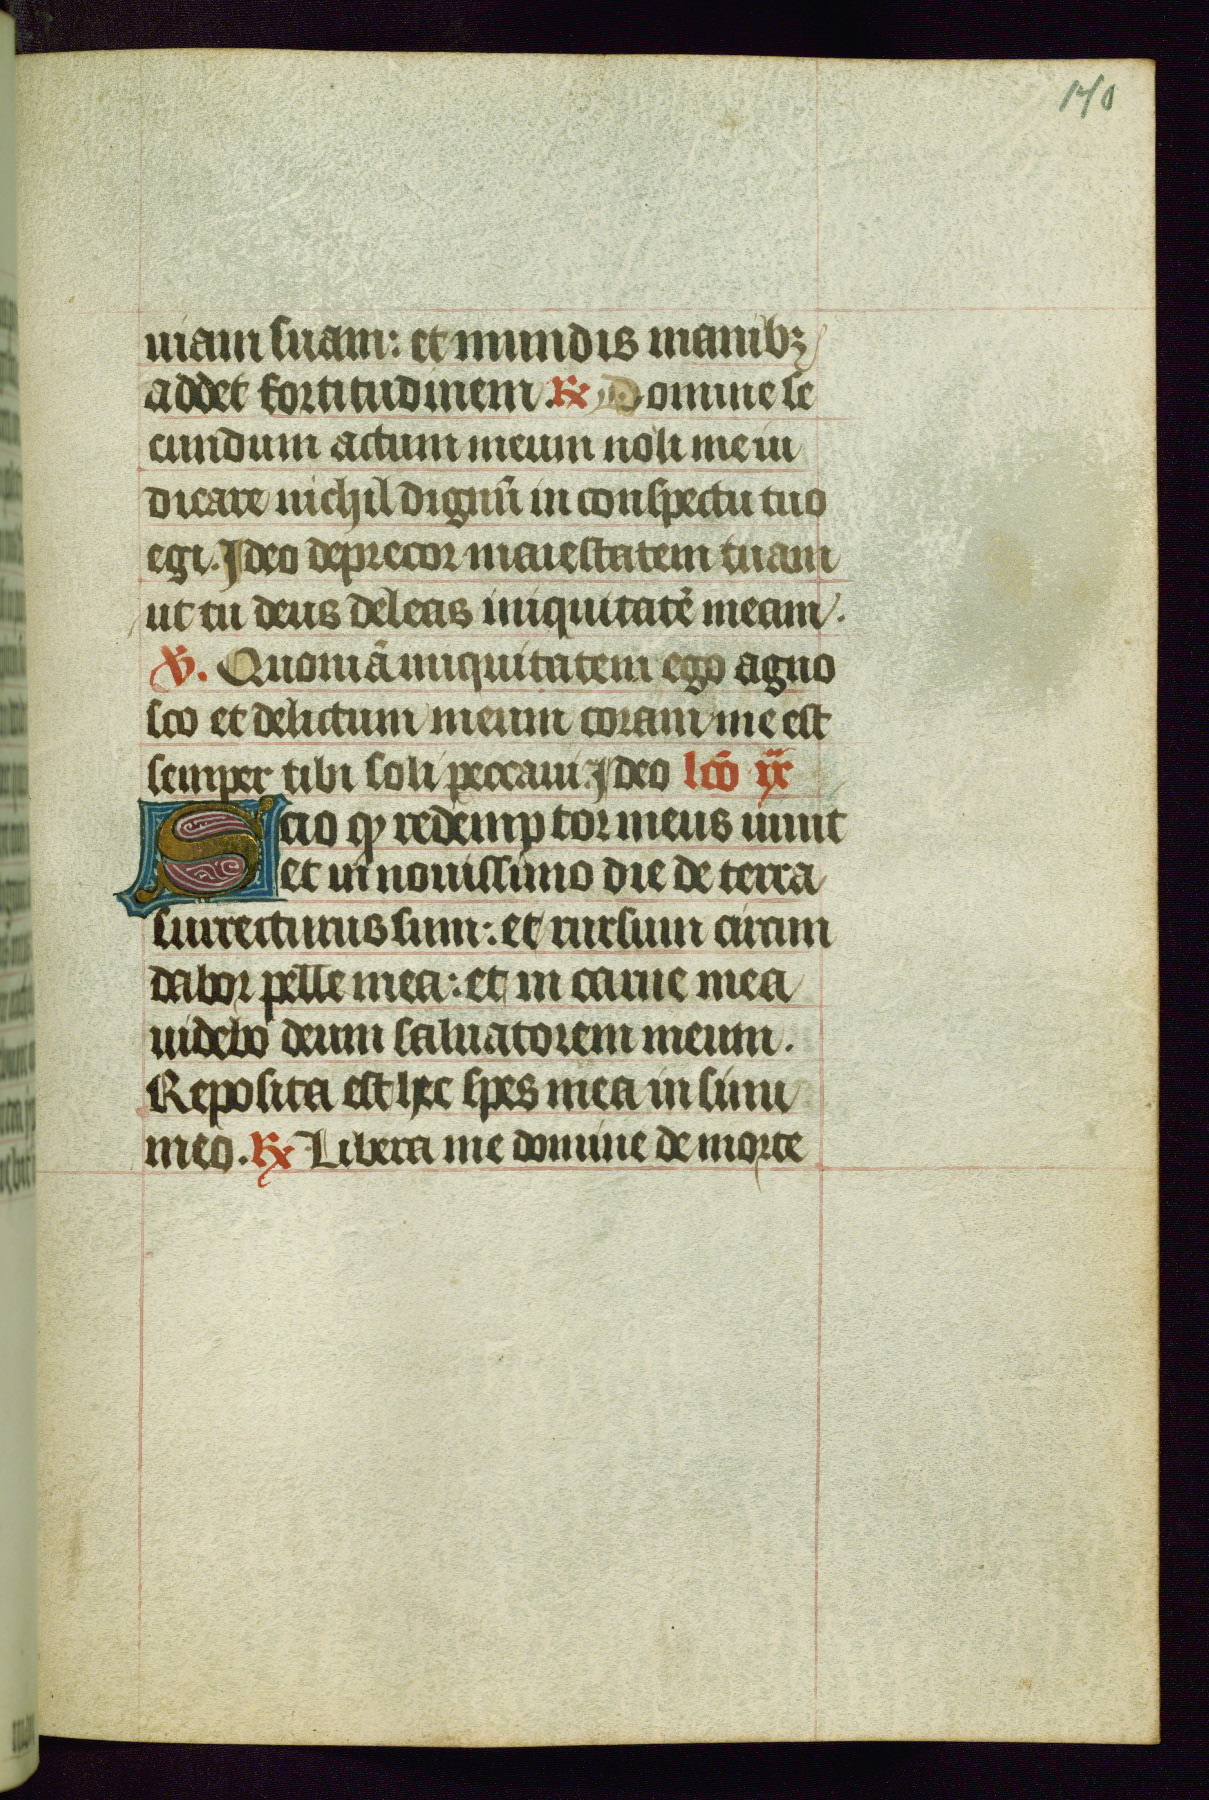 170
uiam suam: et mundis manibꝫ
addet fortitudinem. ℞ Domine se
cundum actum meum noli me iu
dicare nichil dignū in conspectu tuo
egi. Ideo deprecor maiestatem tuam
ut tu deus deleas iniquitatē meam.
℣. Quoniā iniquitatem ego agno
sco et delictum meum coram me est
semper tibi soli peccaui Ideo lcō ix
Scio ꝙ redemptor meus uiuit
et in nouissimo die de terra
surrecturus sum: et rursum circun
dabor pelle mea: et in carne mea
uidebo deum saluatorem meum.
Reposita est hec spes mea in sinu
meo. ℞ Libera me domine de morte